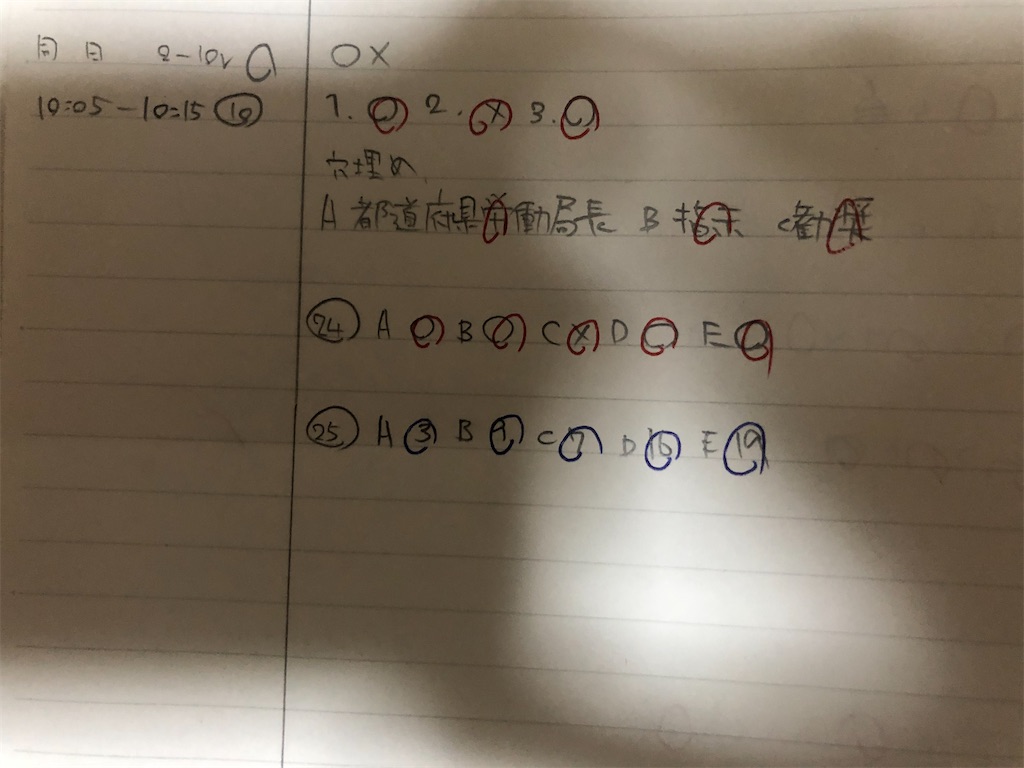 同日 2-10v ○×
10:05-10:15 ⑩ 1. ○ 2. × 3. ○
穴埋め
A 都道府県労働局長 B 指示 C 勧奨
㉔ A ○ B ○ C × D ○ E ○
㉕ A 3 B 1 C 7 D 16 E 19